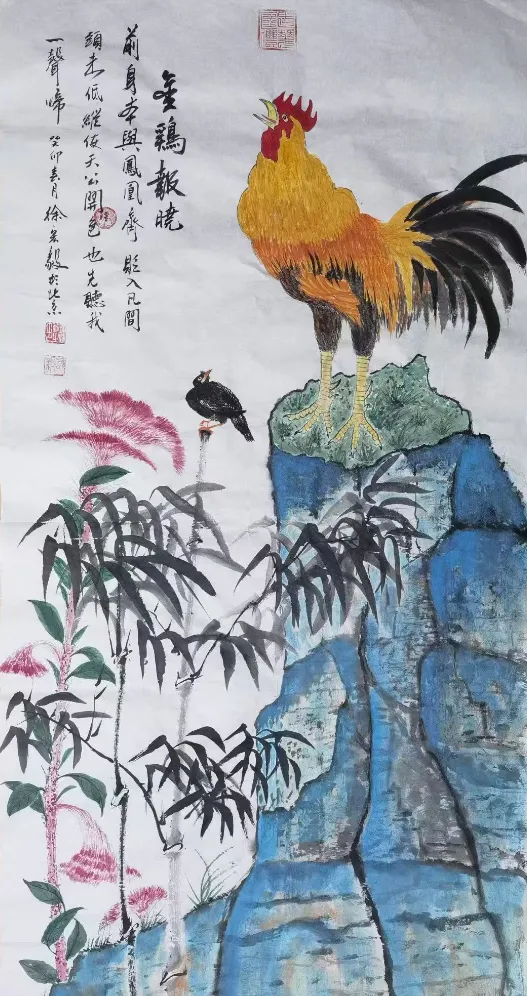 金鷄報晓
前身本與鳳凰齊 貶入凡間
頭未低縱使天公開色也先聽我
一聲啼 癸卯春月徐宏毅於北京